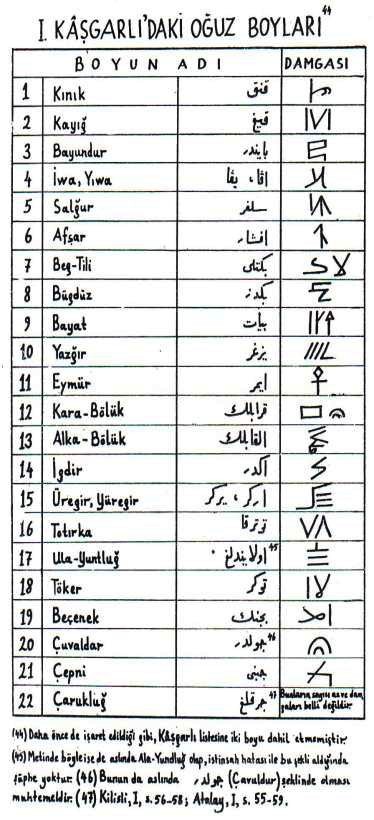 I. KÂŞGARLI'DAKİ OĞUZ BOYLARI 44
BOYUN ADI DAMGASI
1 Kınık قنق
2 Kayığ قيغ
3 Bayundur بايندر
4 İwa, Yıwa اڤا، يڤا
5 Salğur سلغر
6 Afşar افشار
7 Beg-Tili بكتلى
8 Bügdüz بكدز
9 Bayat بيات
10 Yazğır يزغر
11 Eymür ايمر
12 Kara-Bölük قرابلك
13 Alka-Bölük القابلك
14 İgdir اكدر
15 Üregir, Yüregir اركر، يركر
16 Totırka توترقا
17 Ula-Yuntluğ اولايندلغ 45
18 Töker توكر
19 Beçenek بجنك
20 Çuvaldar جولدر 46
21 Çepni جبنى
22 Çarukluğ جرقلغ 47 Bunların sayısı az ve dam-
gaları belli değildir.
(44) Daha önce de işaret edildiği gibi, Kâşgarlı listesine iki boyu dahil etmemiştir.
(45) Metinde böyle ise de aslında Ala-Yundluğ olup, istinsah hatası ile bu şekli aldığında
şüphe yoktur. (46) Bunun da aslında جولدر (Çavuldur) şeklinde olması
muhtemeldir. (47) Kilisli, I, s. 56-58; Atalay, I, s. 55-59.